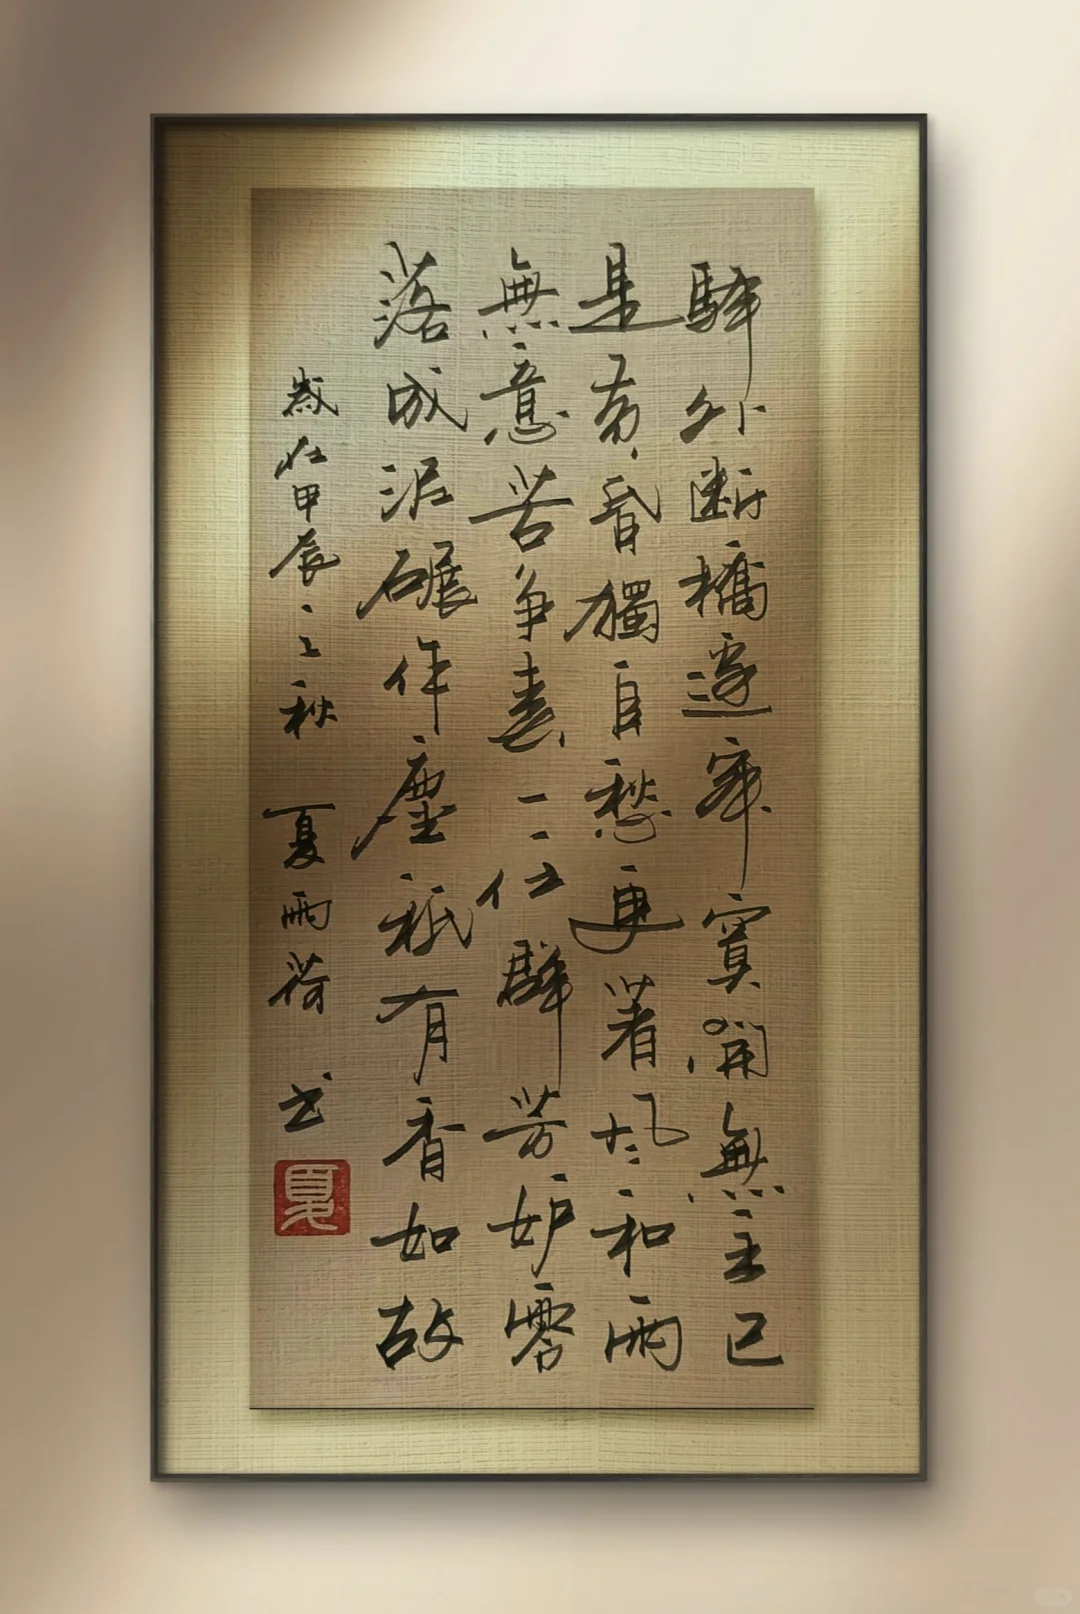 驛外断橋邊寂寞開無主已
是黄昏獨自愁更著風和雨
無意苦争春一任群芳妒零
落成泥碾作塵祇有香如故
歲在甲辰之秋 夏雨荷 书
夏